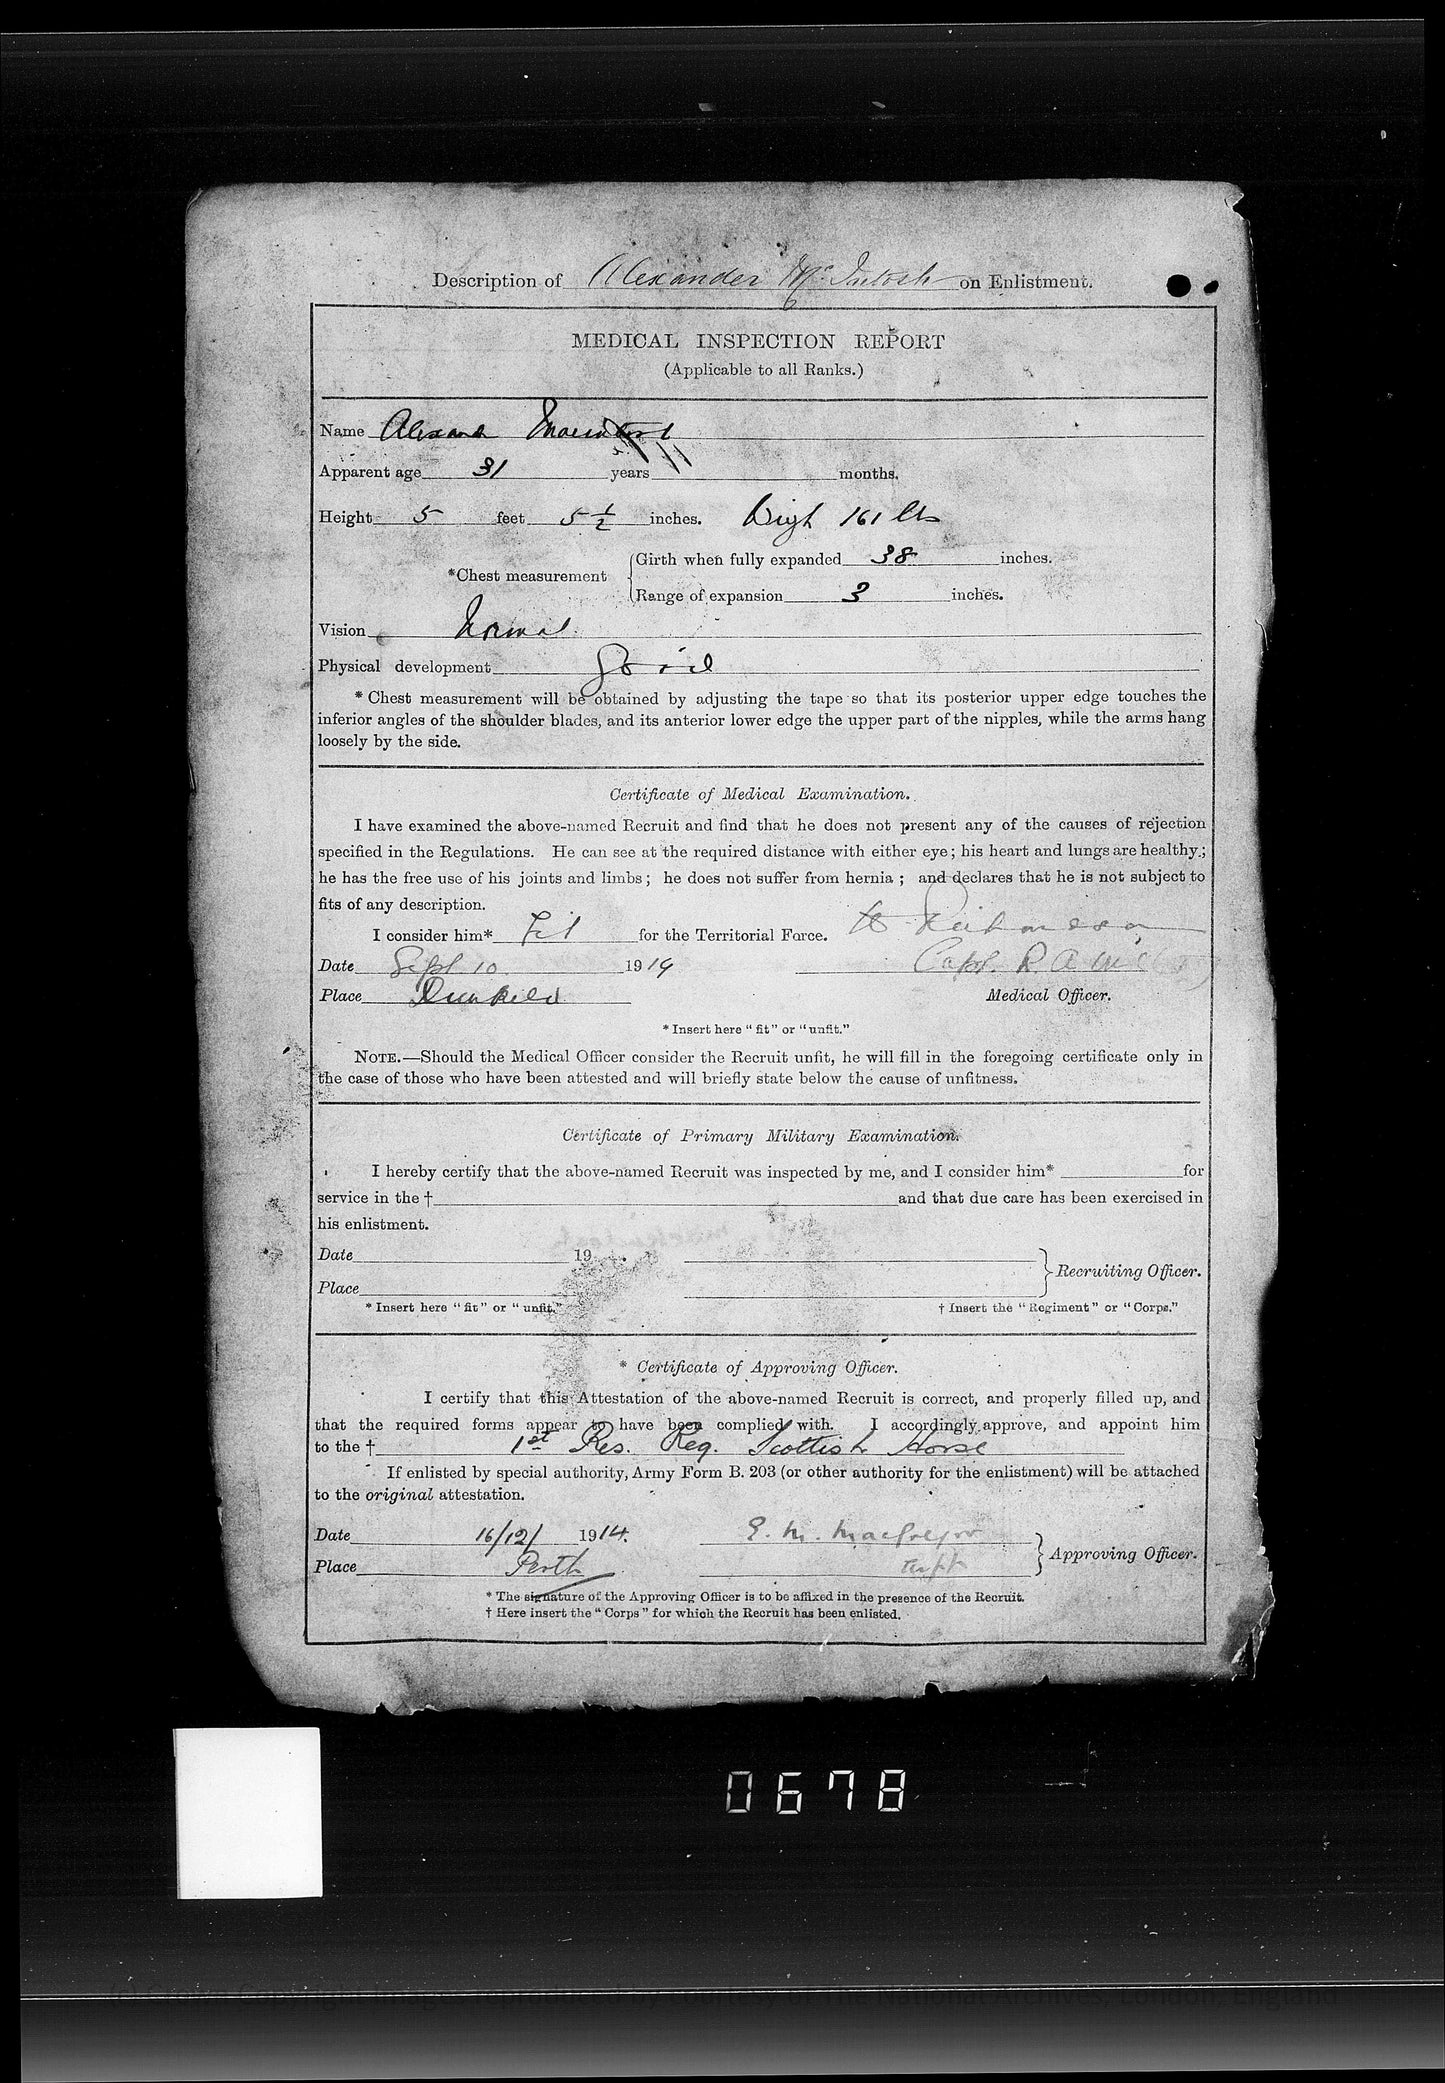 Description of Alexander McIntosh on Enlistment.
MEDICAL INSPECTION REPORT
(Applicable to all Ranks.)
Name
Apparent age 31 years months.
Height 5 feet 5 1/2 inches. Weigh 161 lbs
*Chest measurement
Girth when fully expanded 38 inches.
Range of expansion 3 inches.
Vision Normal
Physical development Good
* Chest measurement will be obtained by adjusting the tape so that its posterior upper edge touches the
inferior angles of the shoulder blades, and its anterior lower edge the upper part of the nipples, while the arms hang
loosely by the side.
Certificate of Medical Examination.
I have examined the above-named Recruit and find that he does not present any of the causes of rejection
specified in the Regulations. He can see at the required distance with either eye; his heart and lungs are healthy;
he has the free use of his joints and limbs; he does not suffer from hernia; and declares that he is not subject to
fits of any description.
I consider him* Fit for the Territorial Force.
Date Sept 10 1914 Capt. R.A.M.C
Place Dunkeld Medical Officer.
* Insert here "fit" or "unfit."
NOTE.—Should the Medical Officer consider the Recruit unfit, he will fill in the foregoing certificate only in
the case of those who have been attested and will briefly state below the cause of unfitness.
Certificate of Primary Military Examination.
I hereby certify that the above-named Recruit was inspected by me, and I consider him* for
service in the † and that due care has been exercised in
his enlistment.
Date 19
Recruiting Officer.
Place
* Insert here "fit" or "unfit." † Insert the "Regiment" or "Corps."
* Certificate of Approving Officer.
I certify that this Attestation of the above-named Recruit is correct, and properly filled up, and
that the required forms appear to have been complied with. I accordingly approve, and appoint him
to the † 1st Res. Reg. Scottish Horse
If enlisted by special authority, Army Form B. 203 (or other authority for the enlistment) will be attached
to the original attestation.
Date 16/12/ 1914. E. M. MacGregor
Approving Officer.
Place Perth
* The signature of the Approving Officer is to be affixed in the presence of the Recruit.
† Here insert the "Corps" for which the Recruit has been enlisted.
0678
(c) Crown Copyright Images reproduced by courtesy of The National Archives, London, England